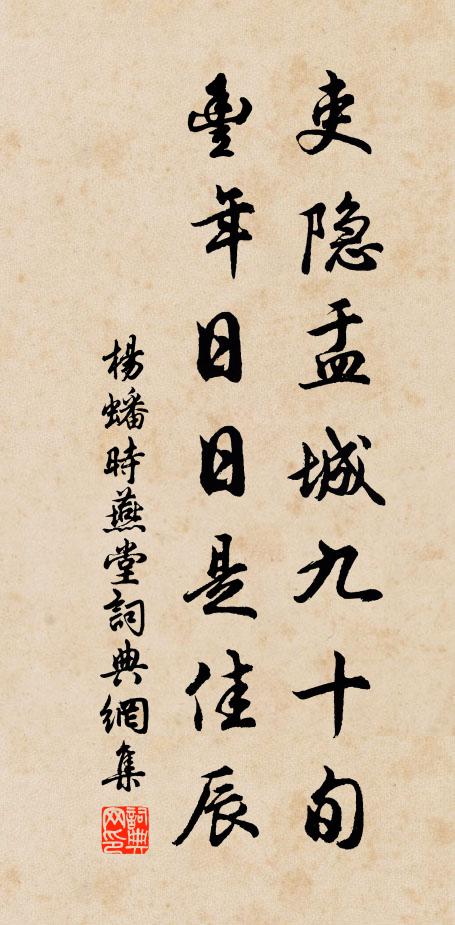 吏隐盂城九十旬
豐年日日是佳辰
楊蟠時燕堂詞典網集
詞典网印